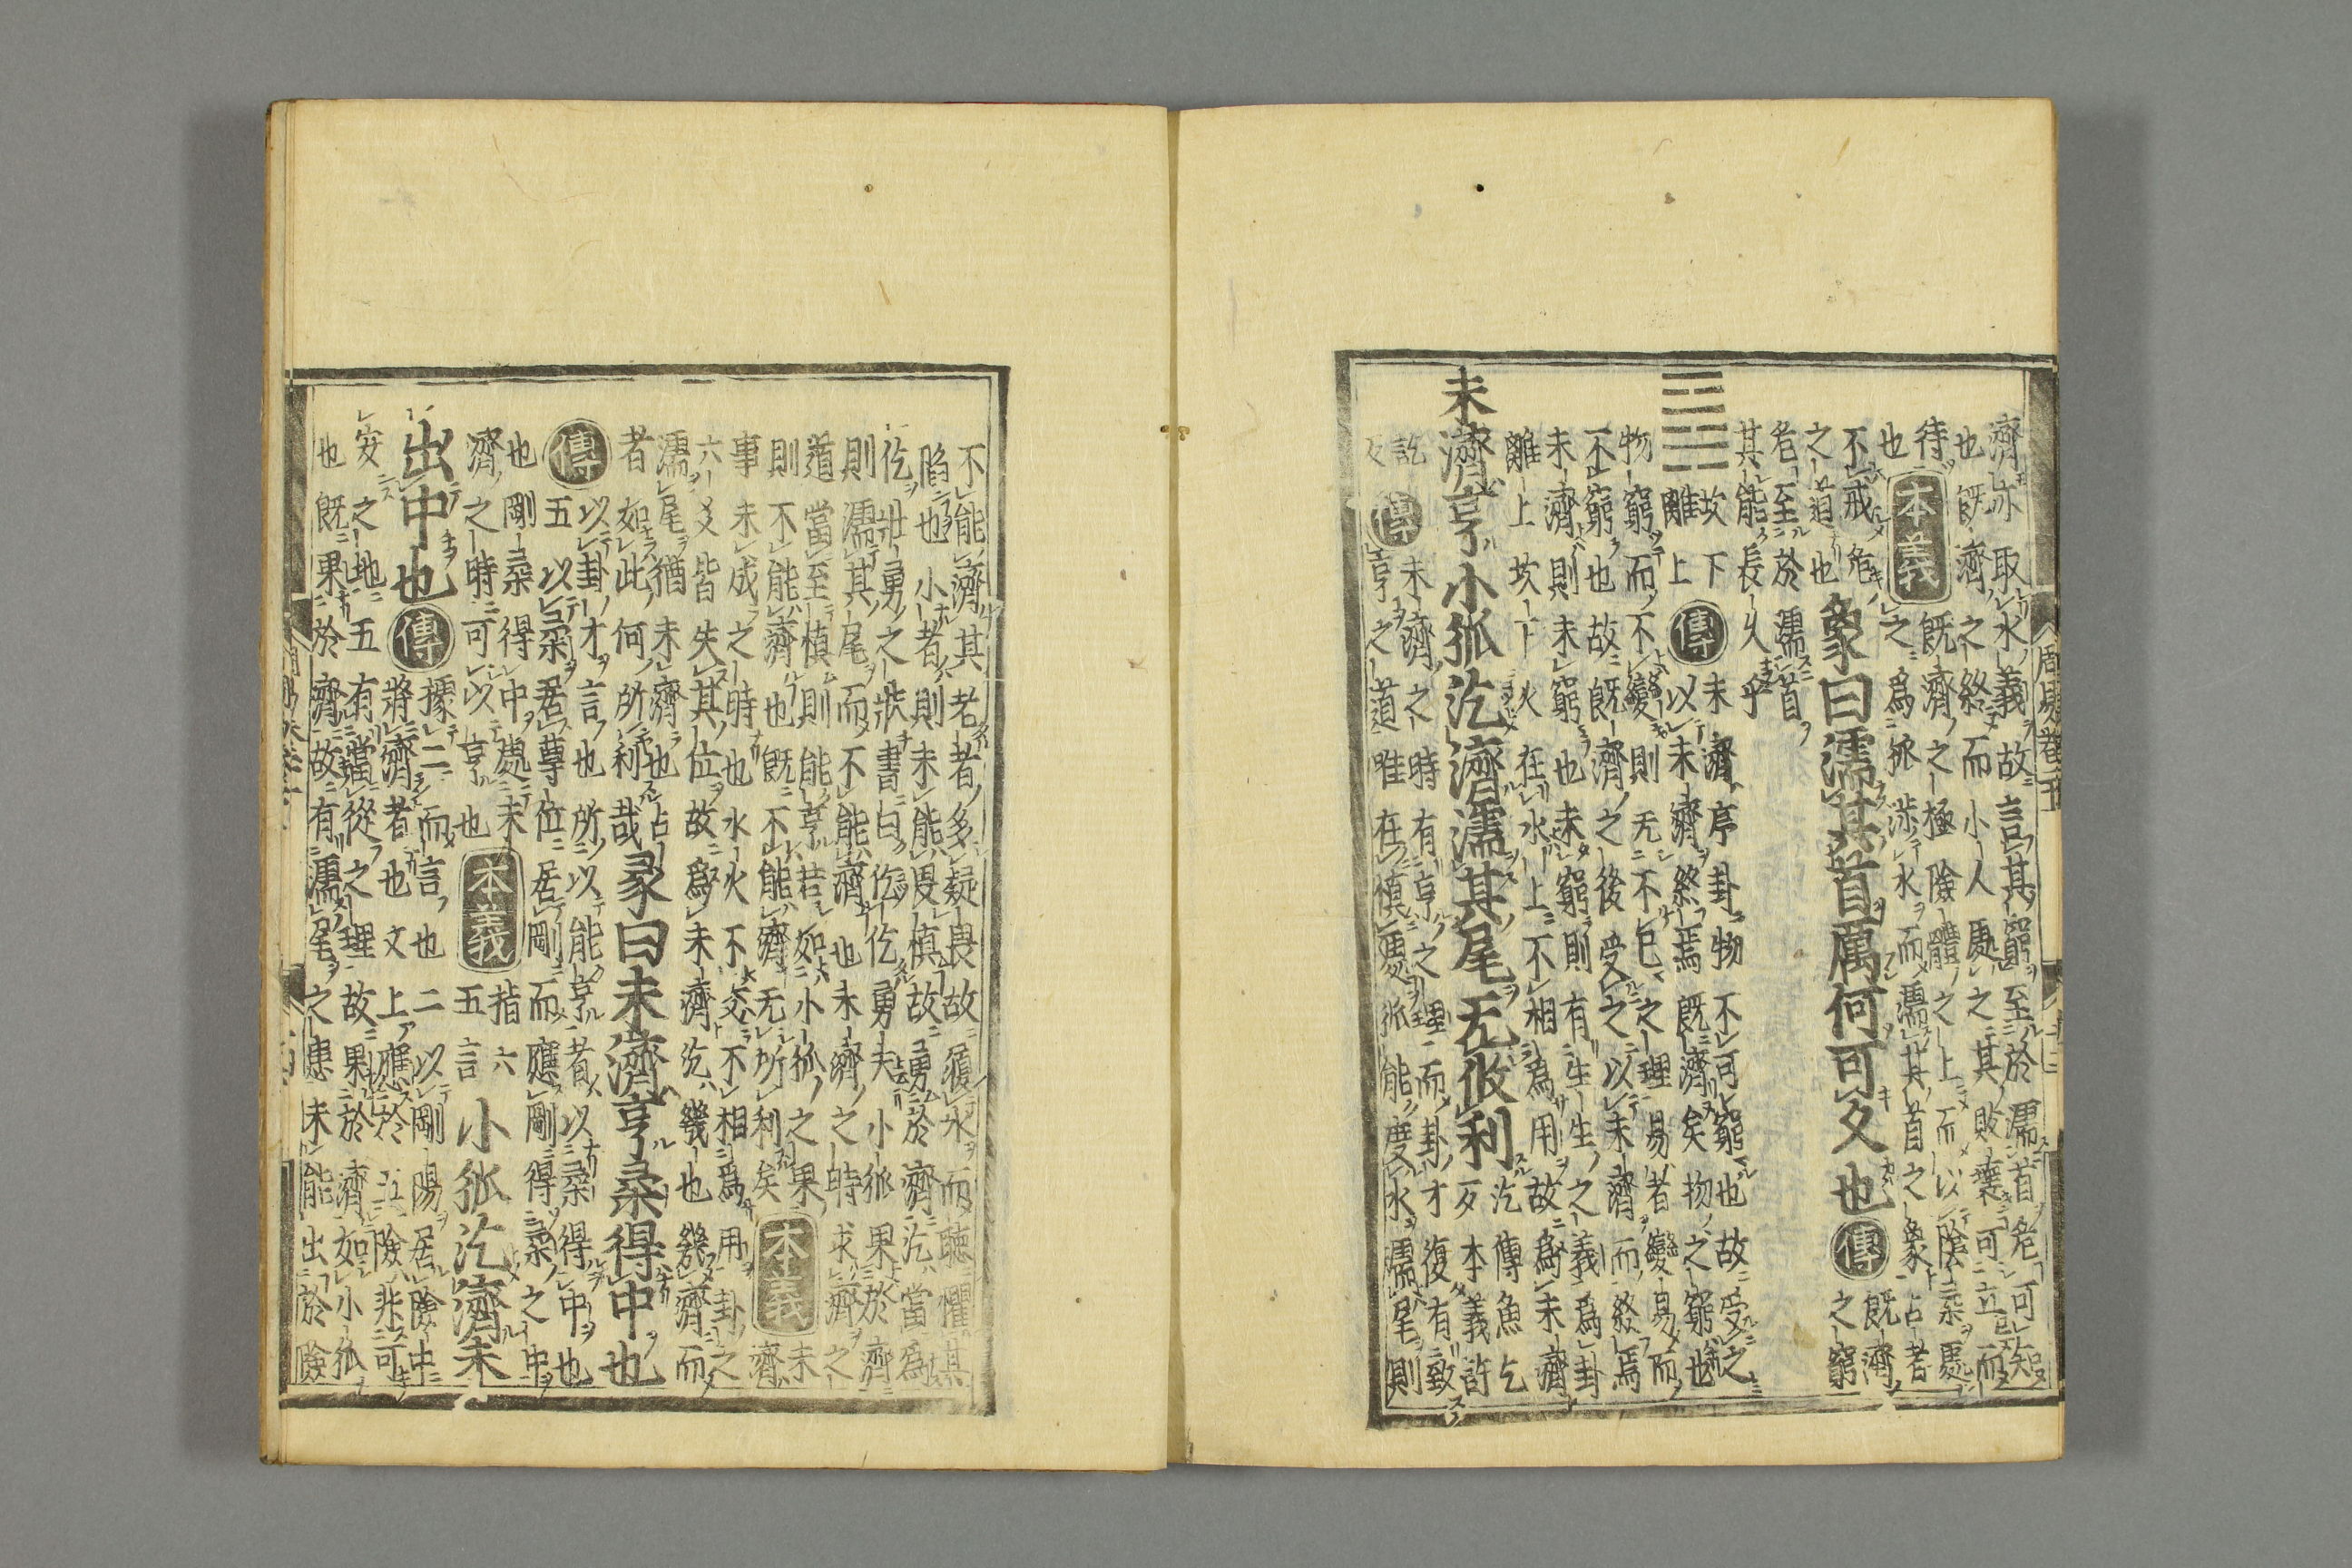 濟亦取水義故言其窮至於濡首危可知
也既濟之終而小人處之其敗壞可立而
待也
本義
既濟之極險體之上而以陰柔處
之爲狐涉水而濡其首之象占者
不戒危
之道也
象曰濡其首厲何可久也
傳
既濟
之窮
危至於濡首
其能長久乎
坎下
離上
傳
未濟序卦物不可窮也故受之
以未濟終焉既濟矣物之窮也
物窮而不變則无不已之理易者變易而
不窮也故既濟之後受之以未濟而終焉
未濟則未窮也未窮則有生生之義爲卦
離上坎下火在水上不相爲用故爲未濟
未濟亨小狐汔濟濡其尾无攸利
汔傳魚乞
反本義許
訖
反
傳
未濟之時有亨之理而卦才復有致
亨之道唯在慎處狐能度水濡尾則
不能濟其老者多疑畏故履冰而聽懼其
陷也小者則未能畏慎故勇於濟汔當爲
仡壯勇之狀書曰仡仡勇夫小狐果於濟
則濡其尾而不能濟也未濟之時求濟之
道當至慎則能亨若如小狐之果
則不能濟也既不能濟无所利矣
本義
未濟
事未成之時也水火不交不相爲用卦之
六爻皆失其位故爲未濟汔幾也幾濟而
濡尾猶未濟也占
者如此何所利哉
彖曰未濟亨柔得中也
傳
以卦才言也所以能亨者以柔得中也
五以柔居尊位居剛而應剛得柔之中
也剛柔得中處未
濟之時可以亨也
本義
指六
五言
小狐汔濟未
出中也
傳
據二而言也二以剛陽居險中
將濟者也又上應於五險非可
安之地五有當從之理故果於濟如小狐
也既果於濟故有濡尾之患未能出於險